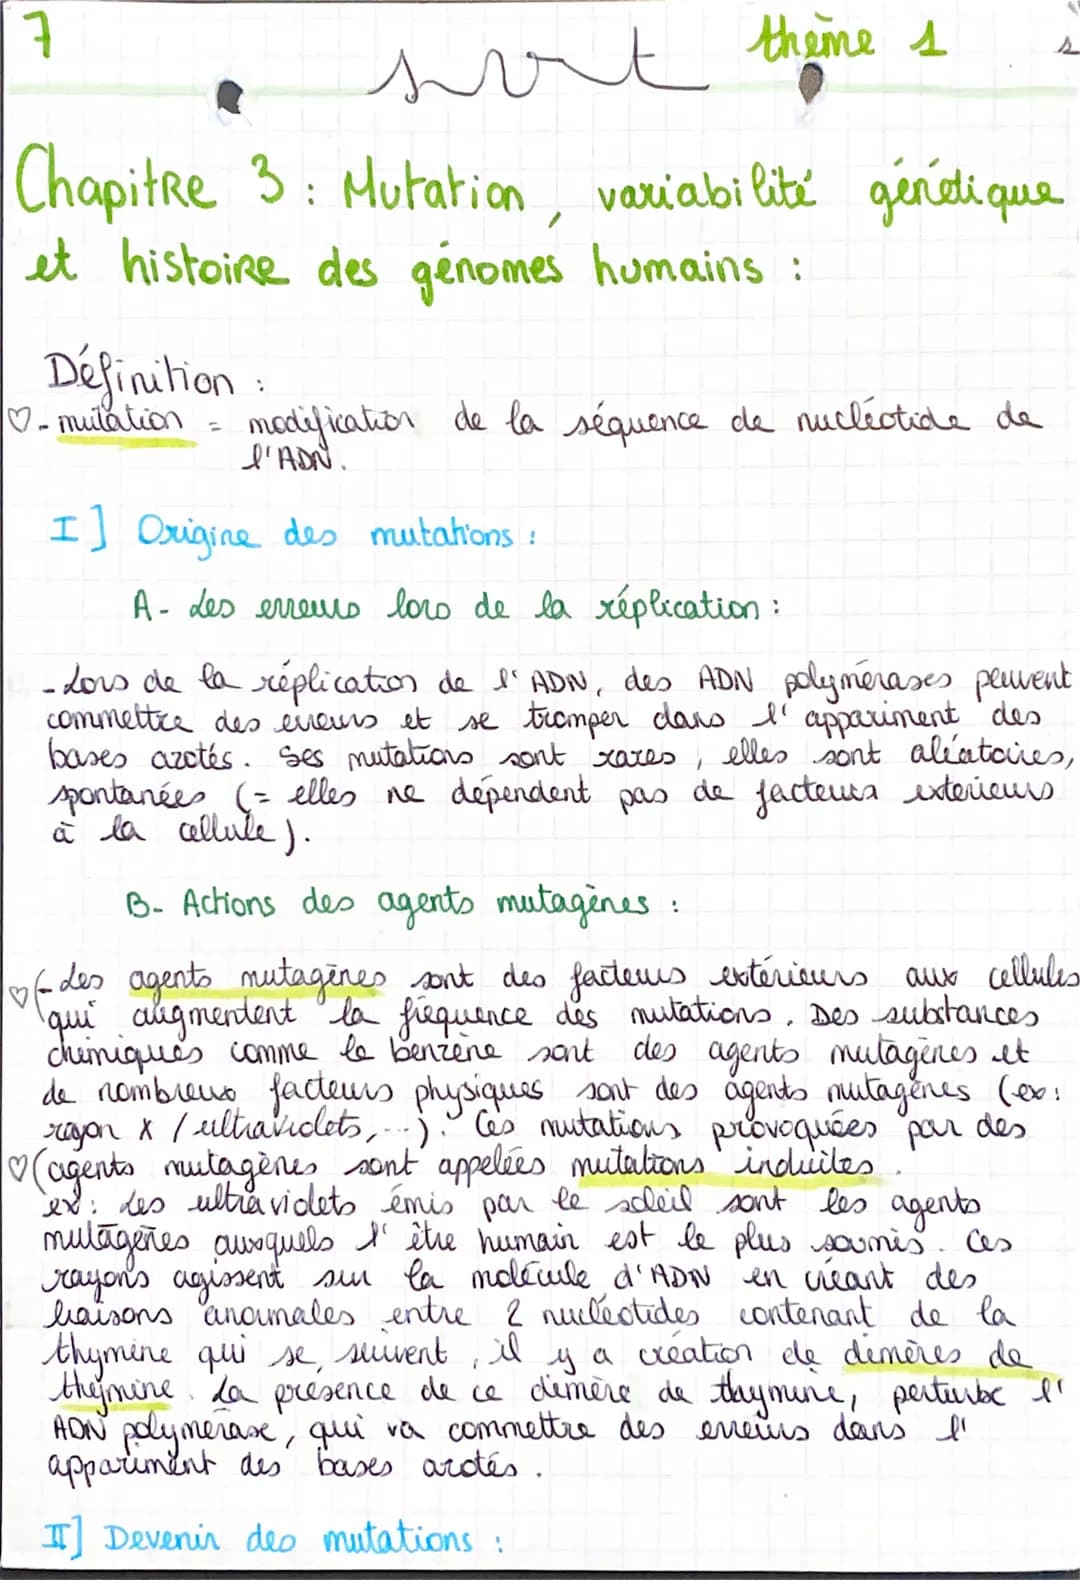 7 svt thème 1
Chapitre 3 : Mutation, variabilité génétique
et histoire des génomes humains :
Définition :
♡ - mutation = modification de la séquence de nucléotide de
l'ADN.
I] Origine des mutations :
A- Les erreurs lors de la réplication :
- Lors de la réplication de l'ADN, des ADN polymérases peuvent
commettre des erreurs et se tromper dans l'appariment des
bases azotés. Ses mutations sont rares, elles sont aléatoires,
spontanées (= elles ne dépendent pas de facteurs exterieurs
à la cellule).
B- Actions des agents mutagènes :
♡ (- Les agents mutagènes sont des facteurs extérieurs aux cellules
qui augmentent la fréquence des mutations. Des substances
chimiques comme le benzène sont des agents mutagènes et
de nombreux facteurs physiques sont des agents mutagènes (ex:
rayon X / ultraviolets,...). Ces mutations provoquées par des
♡ (agents mutagènes sont appelées mutations induites.
ex: Les ultraviolets émis par le soleil sont les agents
mutagènes auxquels l'être humain est le plus soumis. Ces
rayons agissent sur la molécule d'ADN en créant des
liaisons anormales entre 2 nucléotides contenant de la
thymine qui se suivent, il y a création de dimères de
thymine. La présence de ce dimère de thaymine, perturbe l'
ADN polymérase, qui va commettre des erreurs dans l'
appariment des bases arotés.
II] Devenir des mutations :